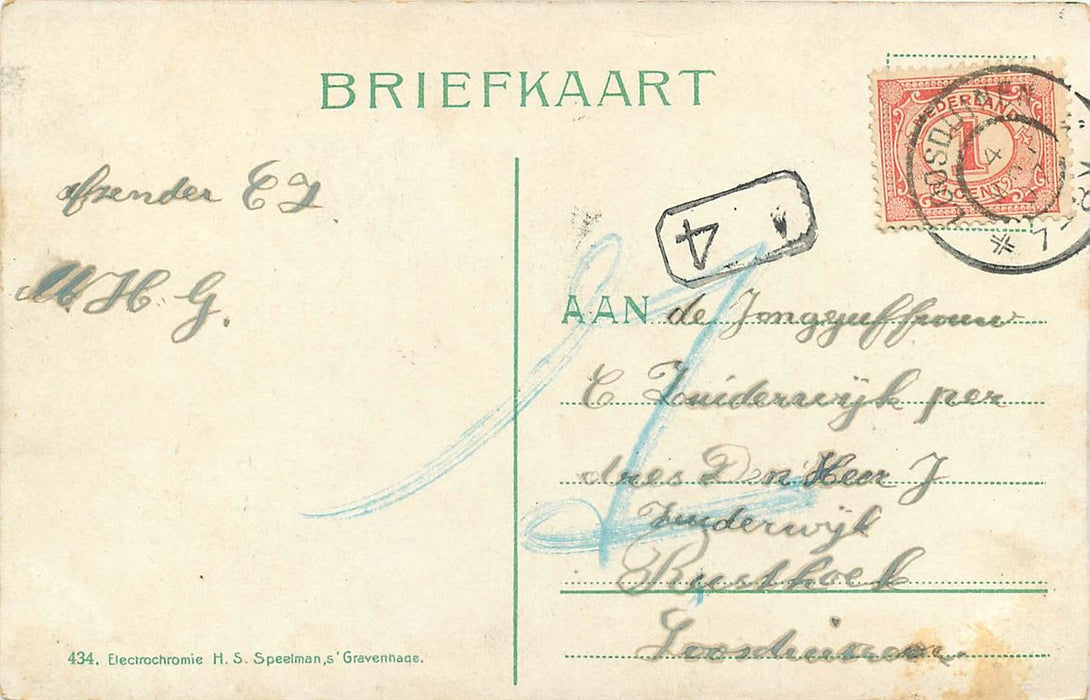 BRIEFKAART
NEDERLAND
1
CENT
LOOSDUINEN
4
afzender C Z
M. H. G.
AAN de Jongejuffrouw
C Zuiderwijk per
dres Den Heer J
Zuiderwijk
Rusthoek
Loosduinen.
434. Electrochromie H. S. Speelman, s' Gravenhage.